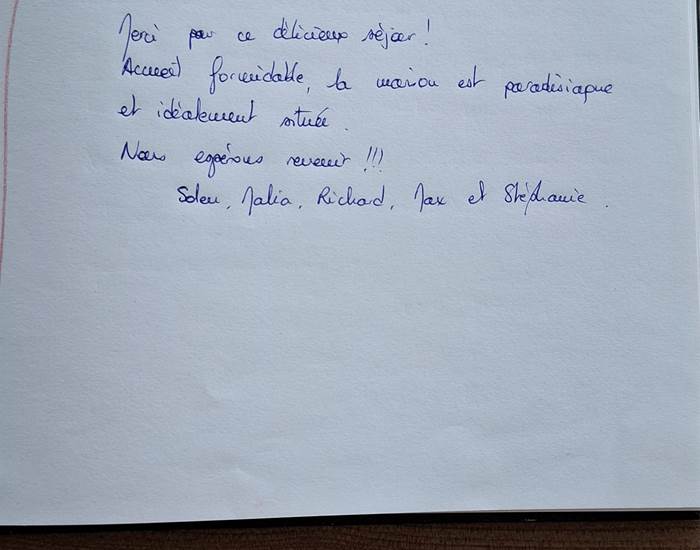 Merci pour ce délicieux séjour !
Accueil formidable, la maison est paradisiaque
et idéalement située.
Nous espérons revenir !!!
Solen, Malia, Richard, Max et Stéphanie.